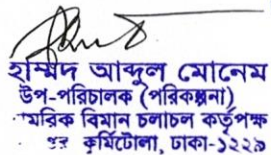 হাম্মিদ আব্দুল মোনেম
উপ-পরিচালক (পরিকল্পনা)
মরিক বিমান চলাচল কর্তৃপক্ষ
কুর্মিটোলা, ঢাকা-১২২৯